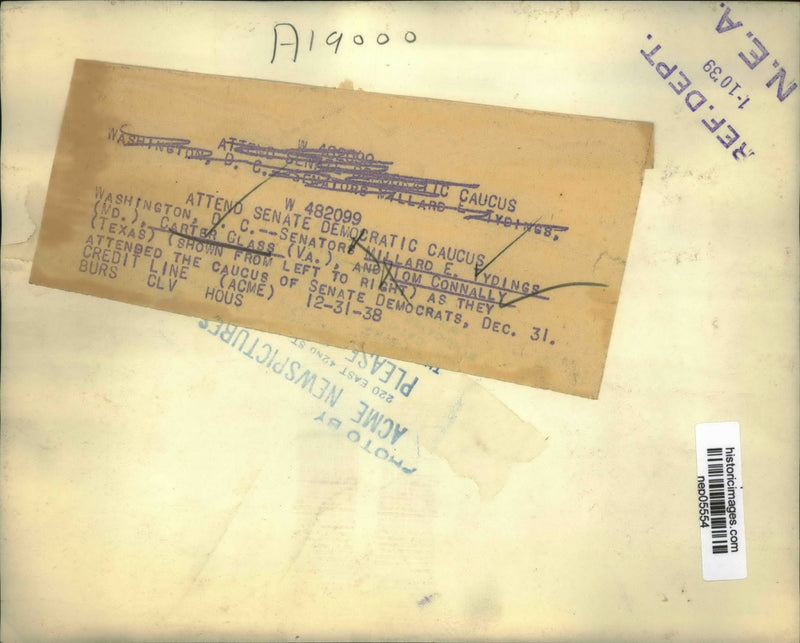 A19000
REF. DEPT.
1-10'39
N.E.A.
W 482099
ATTEND SENATE DEMOCRATIC CAUCUS
WASHINGTON, D. C.--SENATORS MILLARD E. TYDINGS,
W 482099
ATTEND SENATE DEMOCRATIC CAUCUS
WASHINGTON, D. C.--SENATORS MILLARD E. TYDINGS
(MD.), CARTER GLASS (VA.), AND TOM CONNALLY
(TEXAS) (SHOWN FROM LEFT TO RIGHT) AS THEY
ATTENDED THE CAUCUS OF SENATE DEMOCRATS, DEC. 31.
CREDIT LINE (ACME) 12-31-38
BURS CLV HOUS
PLEASE
220 EAST 42ND ST
ACME NEWSPICTURES
PHOTO BY
historicimages.com
nep05554